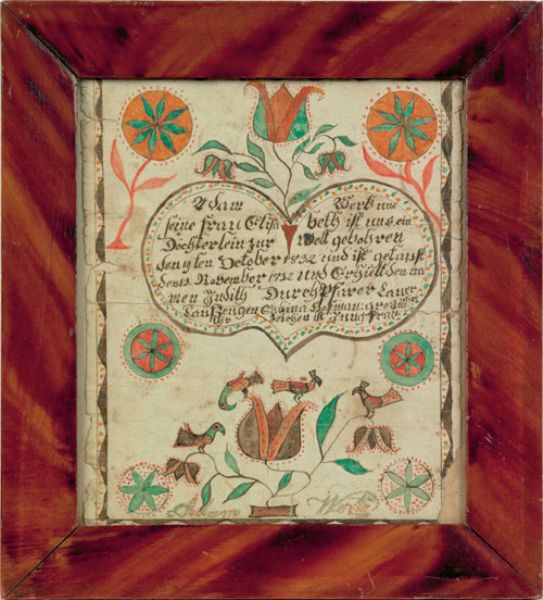 Adam Werb und
seine frau Elisa beth ist uns ein
Dochterlein zur Welt gebohren
den 9ten October 1832 und ist getauft
den 13. November 1732 und Erhielt den na
men Judith Durch Pfarer
Tau Zeugen
Zeichen ist Jungfrau
Adam